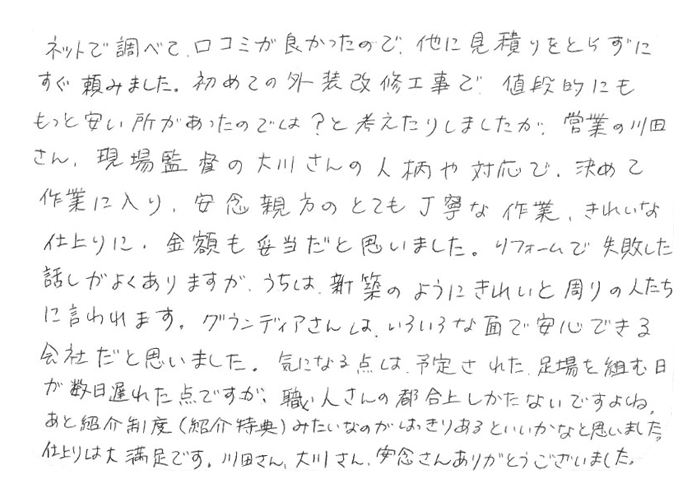 ネットで調べて、口コミが良かったので、他に見積りをとらずに
すぐ頼みました。初めての外装改修工事で、値段的にも
もっと安い所があったのでは？と考えたりしましたが、営業の川田
さん、現場監督の大川さんの人柄や対応で、決めて
作業に入り、安念親方のとても丁寧な作業、きれいな
仕上りに、金額も妥当だと思いました。リフォームで失敗した
話しがよくありますが、うちは、新築のようにきれいと周りの人たち
に言われます。グランディアさんは、いろいろな面で安心できる
会社だと思いました。気になる点は、予定された、足場を組む日
が数日遅れた点ですが、職人さんの都合上しかたないですよね。
あと紹介制度（紹介特典）みたいなのがはっきりあるといいかなと思いました。
仕上りは大満足です。川田さん、大川さん、安念さんありがとうございました。